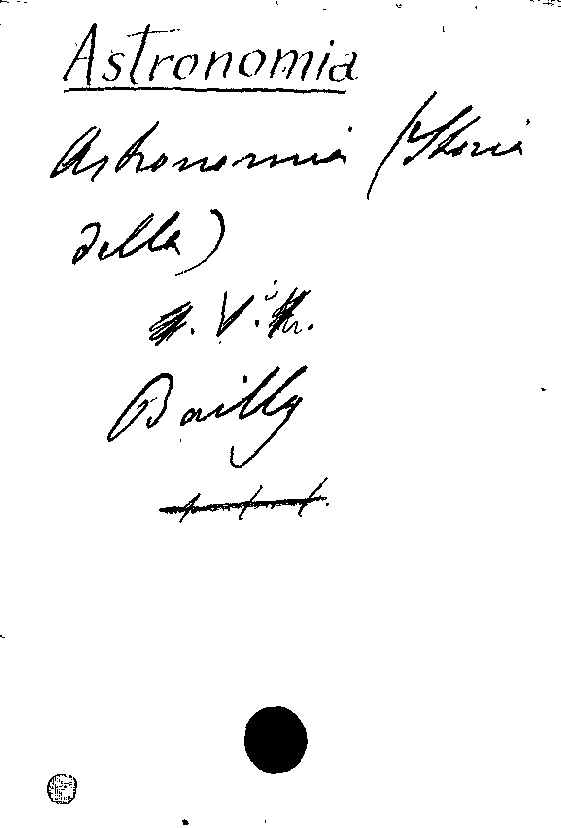 Astronomia
Astronomia (Storia
della)
V.
Bailly